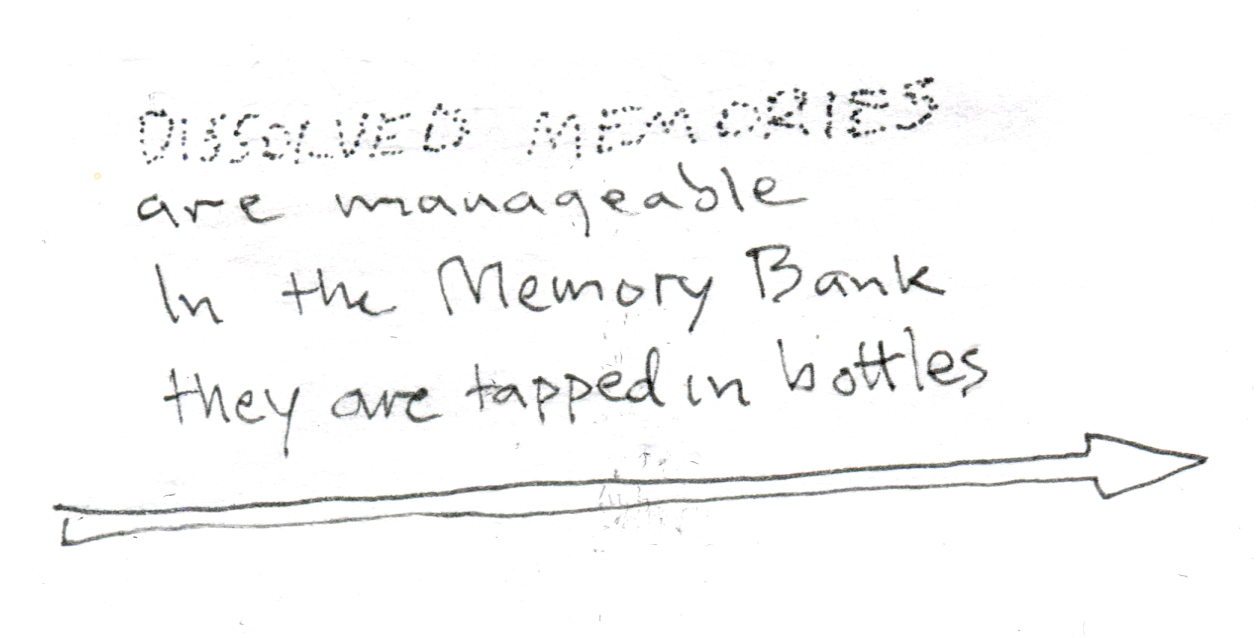 DISSOLVED MEMORIES
are manageable
In the Memory Bank
they are tapped in bottles